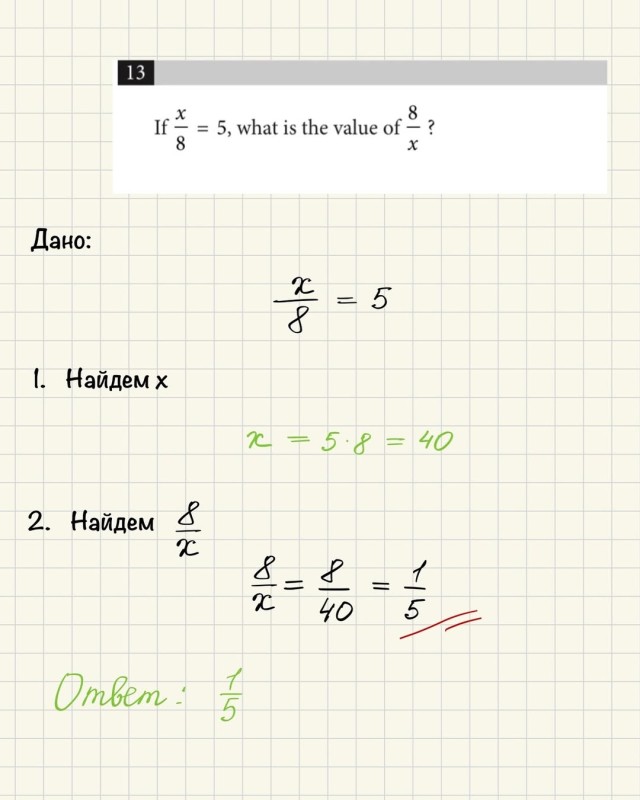 13
If x/8 = 5, what is the value of 8/x ?
Дано:
x/8 = 5
1. Найдем x
x = 5·8 = 40
2. Найдем 8/x
8/x = 8/40 = 1/5
Ответ: 1/5